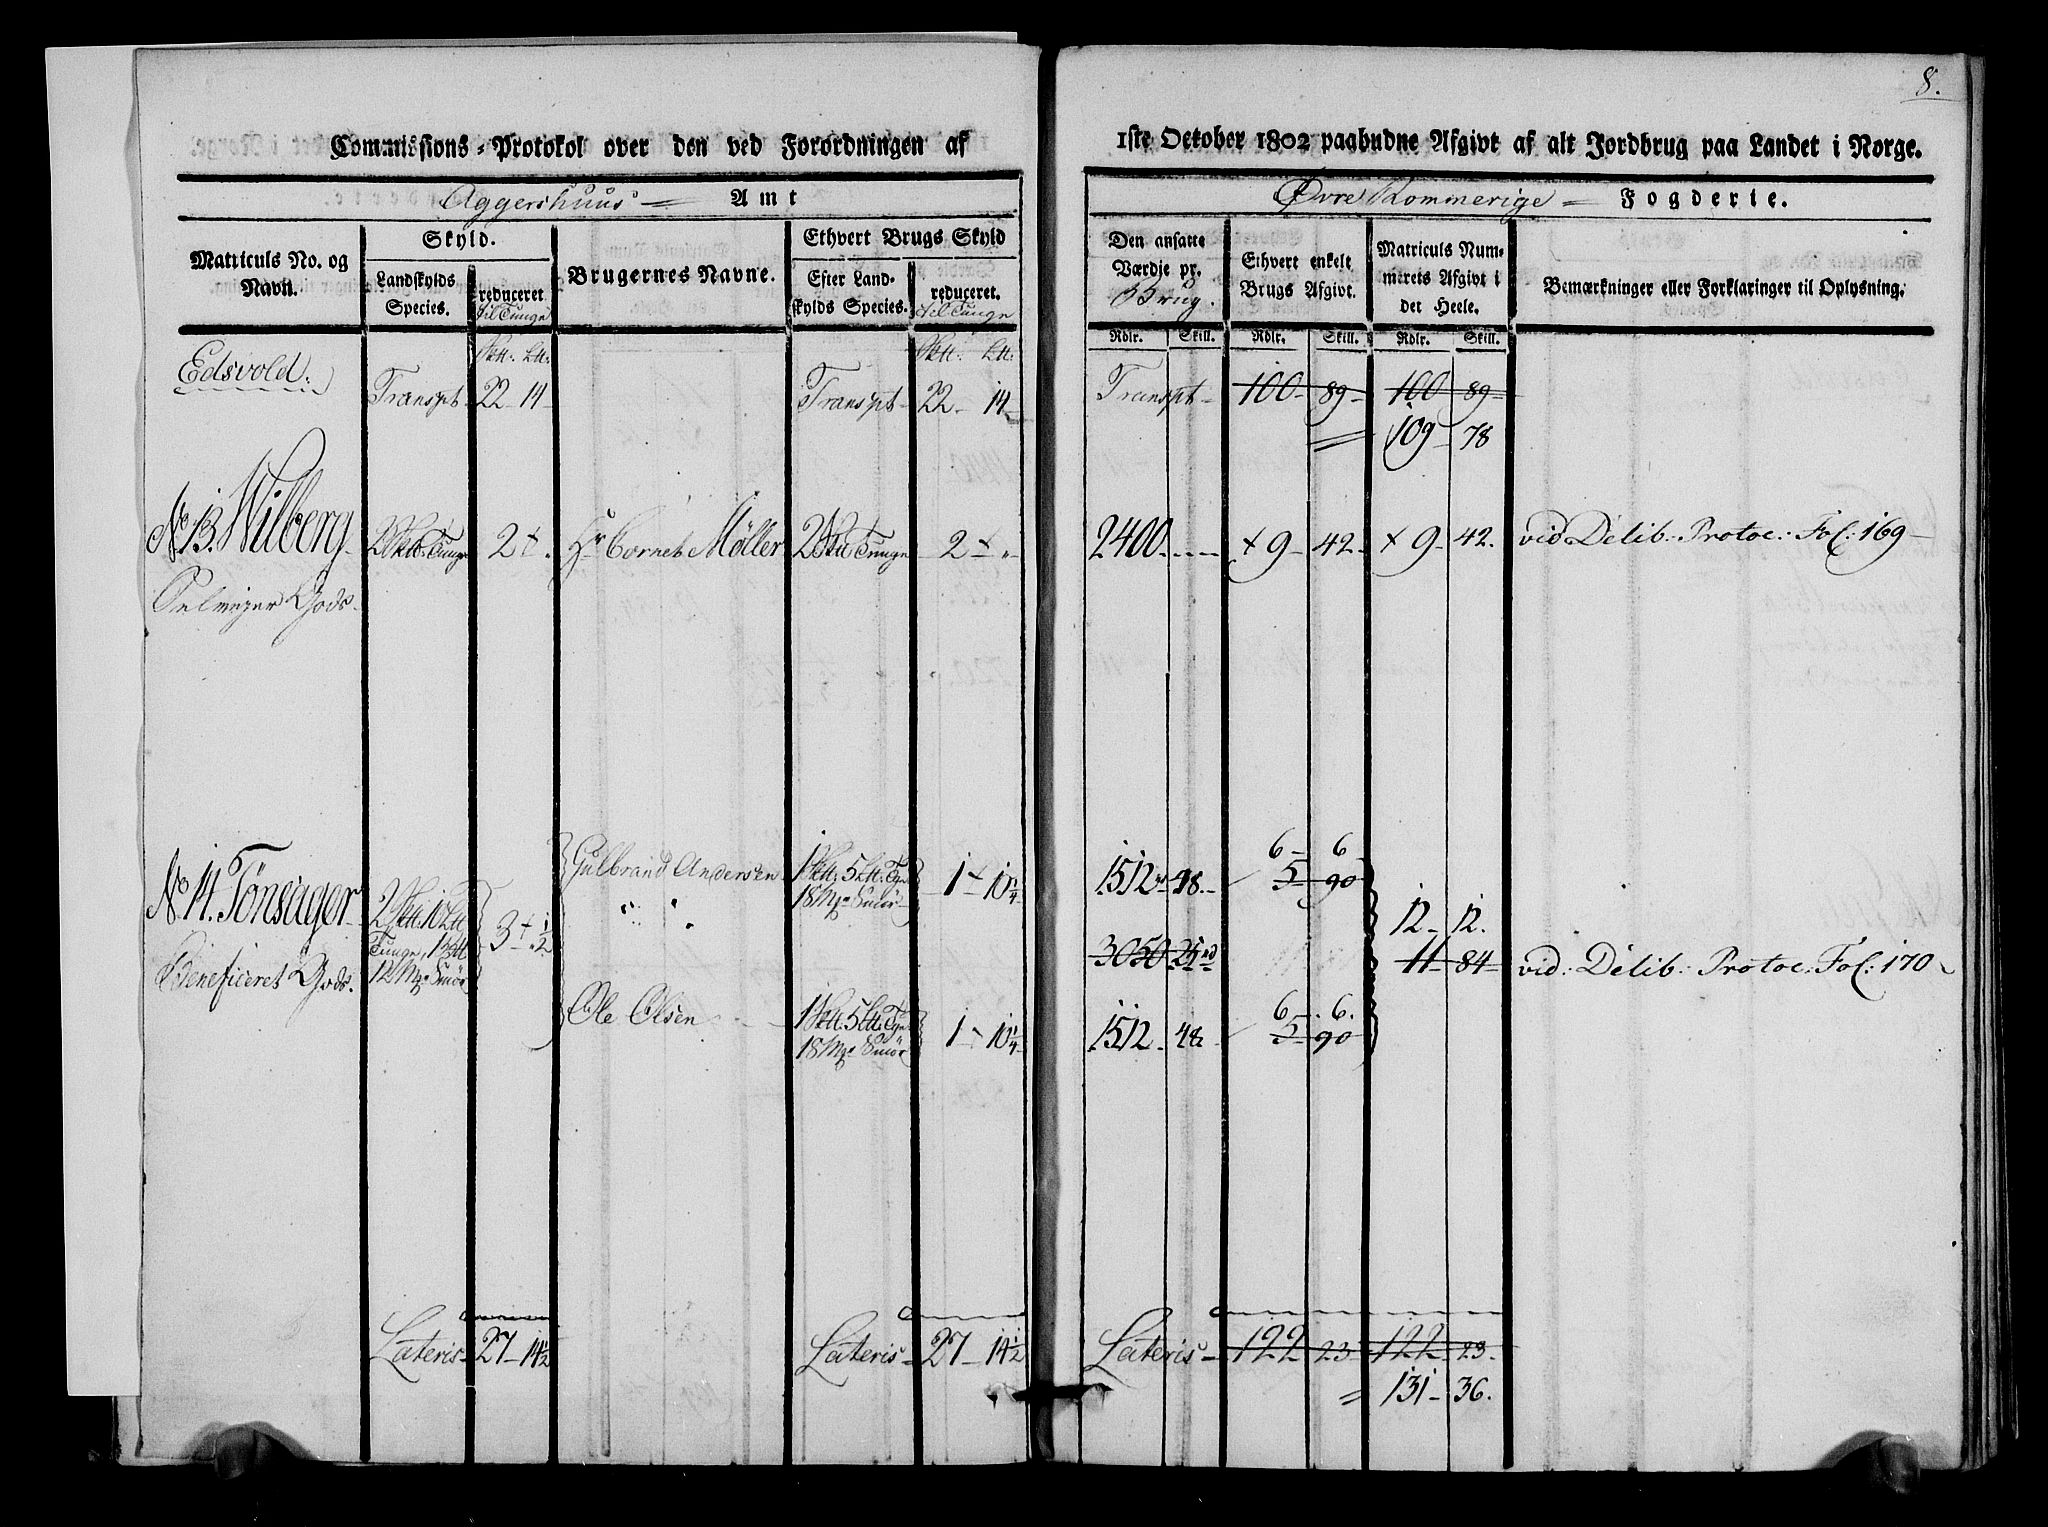 8.
Commissions-Protokol over den ved Forordningen af 1ste October 1802 paabudne Afgivt af alt Jordbrug paa Landet i Norge.
Aggershuus Amt
Øvre Rommerige Fogderie.
Matriculs No. og Navn.
Skyld.
Landskylds Species.
reduceret til Tunge
Brugernes Navne.
Ethvert Brugs Skyld
Efter Landskylds Species.
reduceret. til Tunge
Den ansatte Værdje pr. Brug.
Ethvert enkelt Brugs Afgivt.
Matriculs Nummerets Afgivt i det Heele.
Bemærkninger eller Forklaringer til Oplysning.
Rdlr. Skill. Rdlr. Skill. Rdlr. Skill.
Edsvold.
Transpt 22 - 14 - Transpt - 22 - 14 - Transpt - 100 - 89 - 100 - 89
109 - 78
No 13. Wilberg 2 Tunge 2 Hr Cornet Møller 2 Tunge 2 2400 9 - 42. 9 - 42. vid Delib: Protoc: Fol: 169
Gods.
No 14. Tønsager 3 ½
Tunge,
12 Mrk Smør
Beneficeret Gods.
Gulbrand Andersen 1 5 18 Mrk Smør 1 10¼ 1512 48 6 - 6
5 90
3050 24 12 - 12.
11 - 84 vid: Delib: Protoc: Fol: 170
Ole Olsen 1 5 18 Mrk Smør 1 10¼ 1512 - 48 6. 6.
5 - 90
Lateris - 27 - 14½ Lateris - 27 - 14½ Lateris - 122 23 122 23
131 - 36.